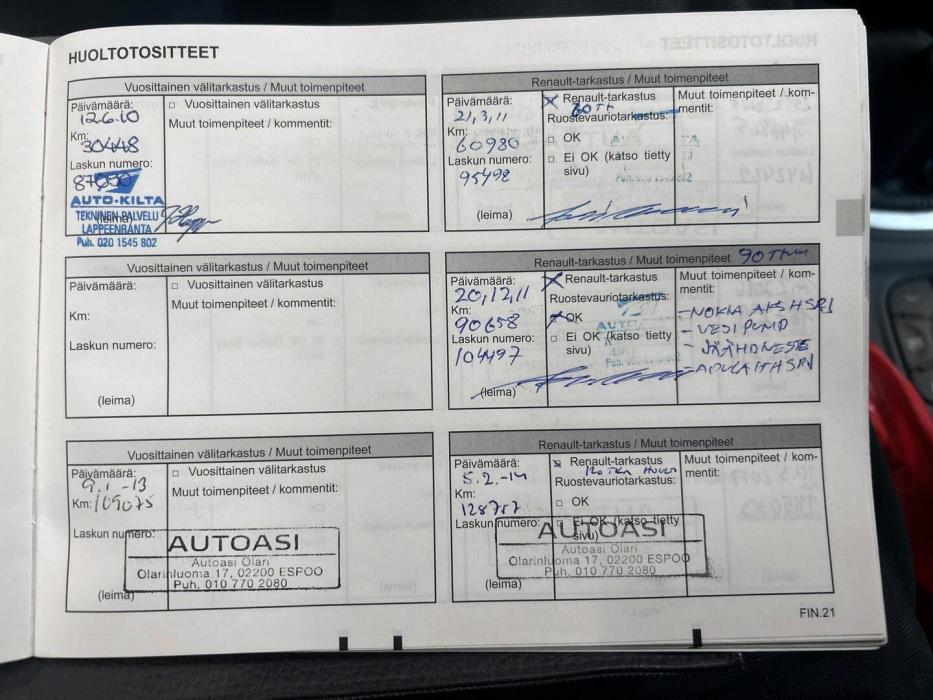 HUOLTOTOSITTEET
Vuosittainen välitarkastus / Muut toimenpiteet
Päivämäärä:
12.6.10
□ Vuosittainen välitarkastus
Muut toimenpiteet / kommentit:
Km:
30448
Laskun numero:
87050
AUTO-KILTA
TEKNINEN PALVELU
(leima)
LAPPEENRANTA
Puh. 020 1545 802
Renault-tarkastus / Muut toimenpiteet
Päivämäärä:
21,3,11
Renault-tarkastus
60 TKM
Ruostevauriotarkastus:
Muut toimenpiteet / kom-
mentit:
Km:
60980
□ OK
Laskun numero:
95492
□ Ei OK (katso tietty
sivu)
(leima)
Vuosittainen välitarkastus / Muut toimenpiteet
Päivämäärä:
□ Vuosittainen välitarkastus
Muut toimenpiteet / kommentit:
Km:
Laskun numero:
(leima)
Renault-tarkastus / Muut toimenpiteet
Päivämäärä:
20,12,11
Renault-tarkastus
Ruostevauriotarkastus:
Muut toimenpiteet / kom-
mentit:
Km:
90658
OK
Laskun numero:
104497
□ Ei OK (katso tietty
sivu)
- VESIPUMP
(leima)
Vuosittainen välitarkastus / Muut toimenpiteet
Päivämäärä:
9.1-13
□ Vuosittainen välitarkastus
Muut toimenpiteet / kommentit:
Km: 109075
Laskun numero:
AUTOASI
Autoasi Olari
Olarinluoma 17, 02200 ESPOO
Puh. 010 770 2080
(leima)
Renault-tarkastus / Muut toimenpiteet
Päivämäärä:
5.2.-14
Renault-tarkastus
120 TKM
Ruostevauriotarkastus:
Muut toimenpiteet / kom-
mentit:
Km:
128757
□ OK
Laskun numero:
□ Ei OK (katso tietty
sivu)
AUTOASI
Autoasi Olari
Olarinluoma 17, 02200 ESPOO
Puh. 010 770 2080
(leima)
FIN.21